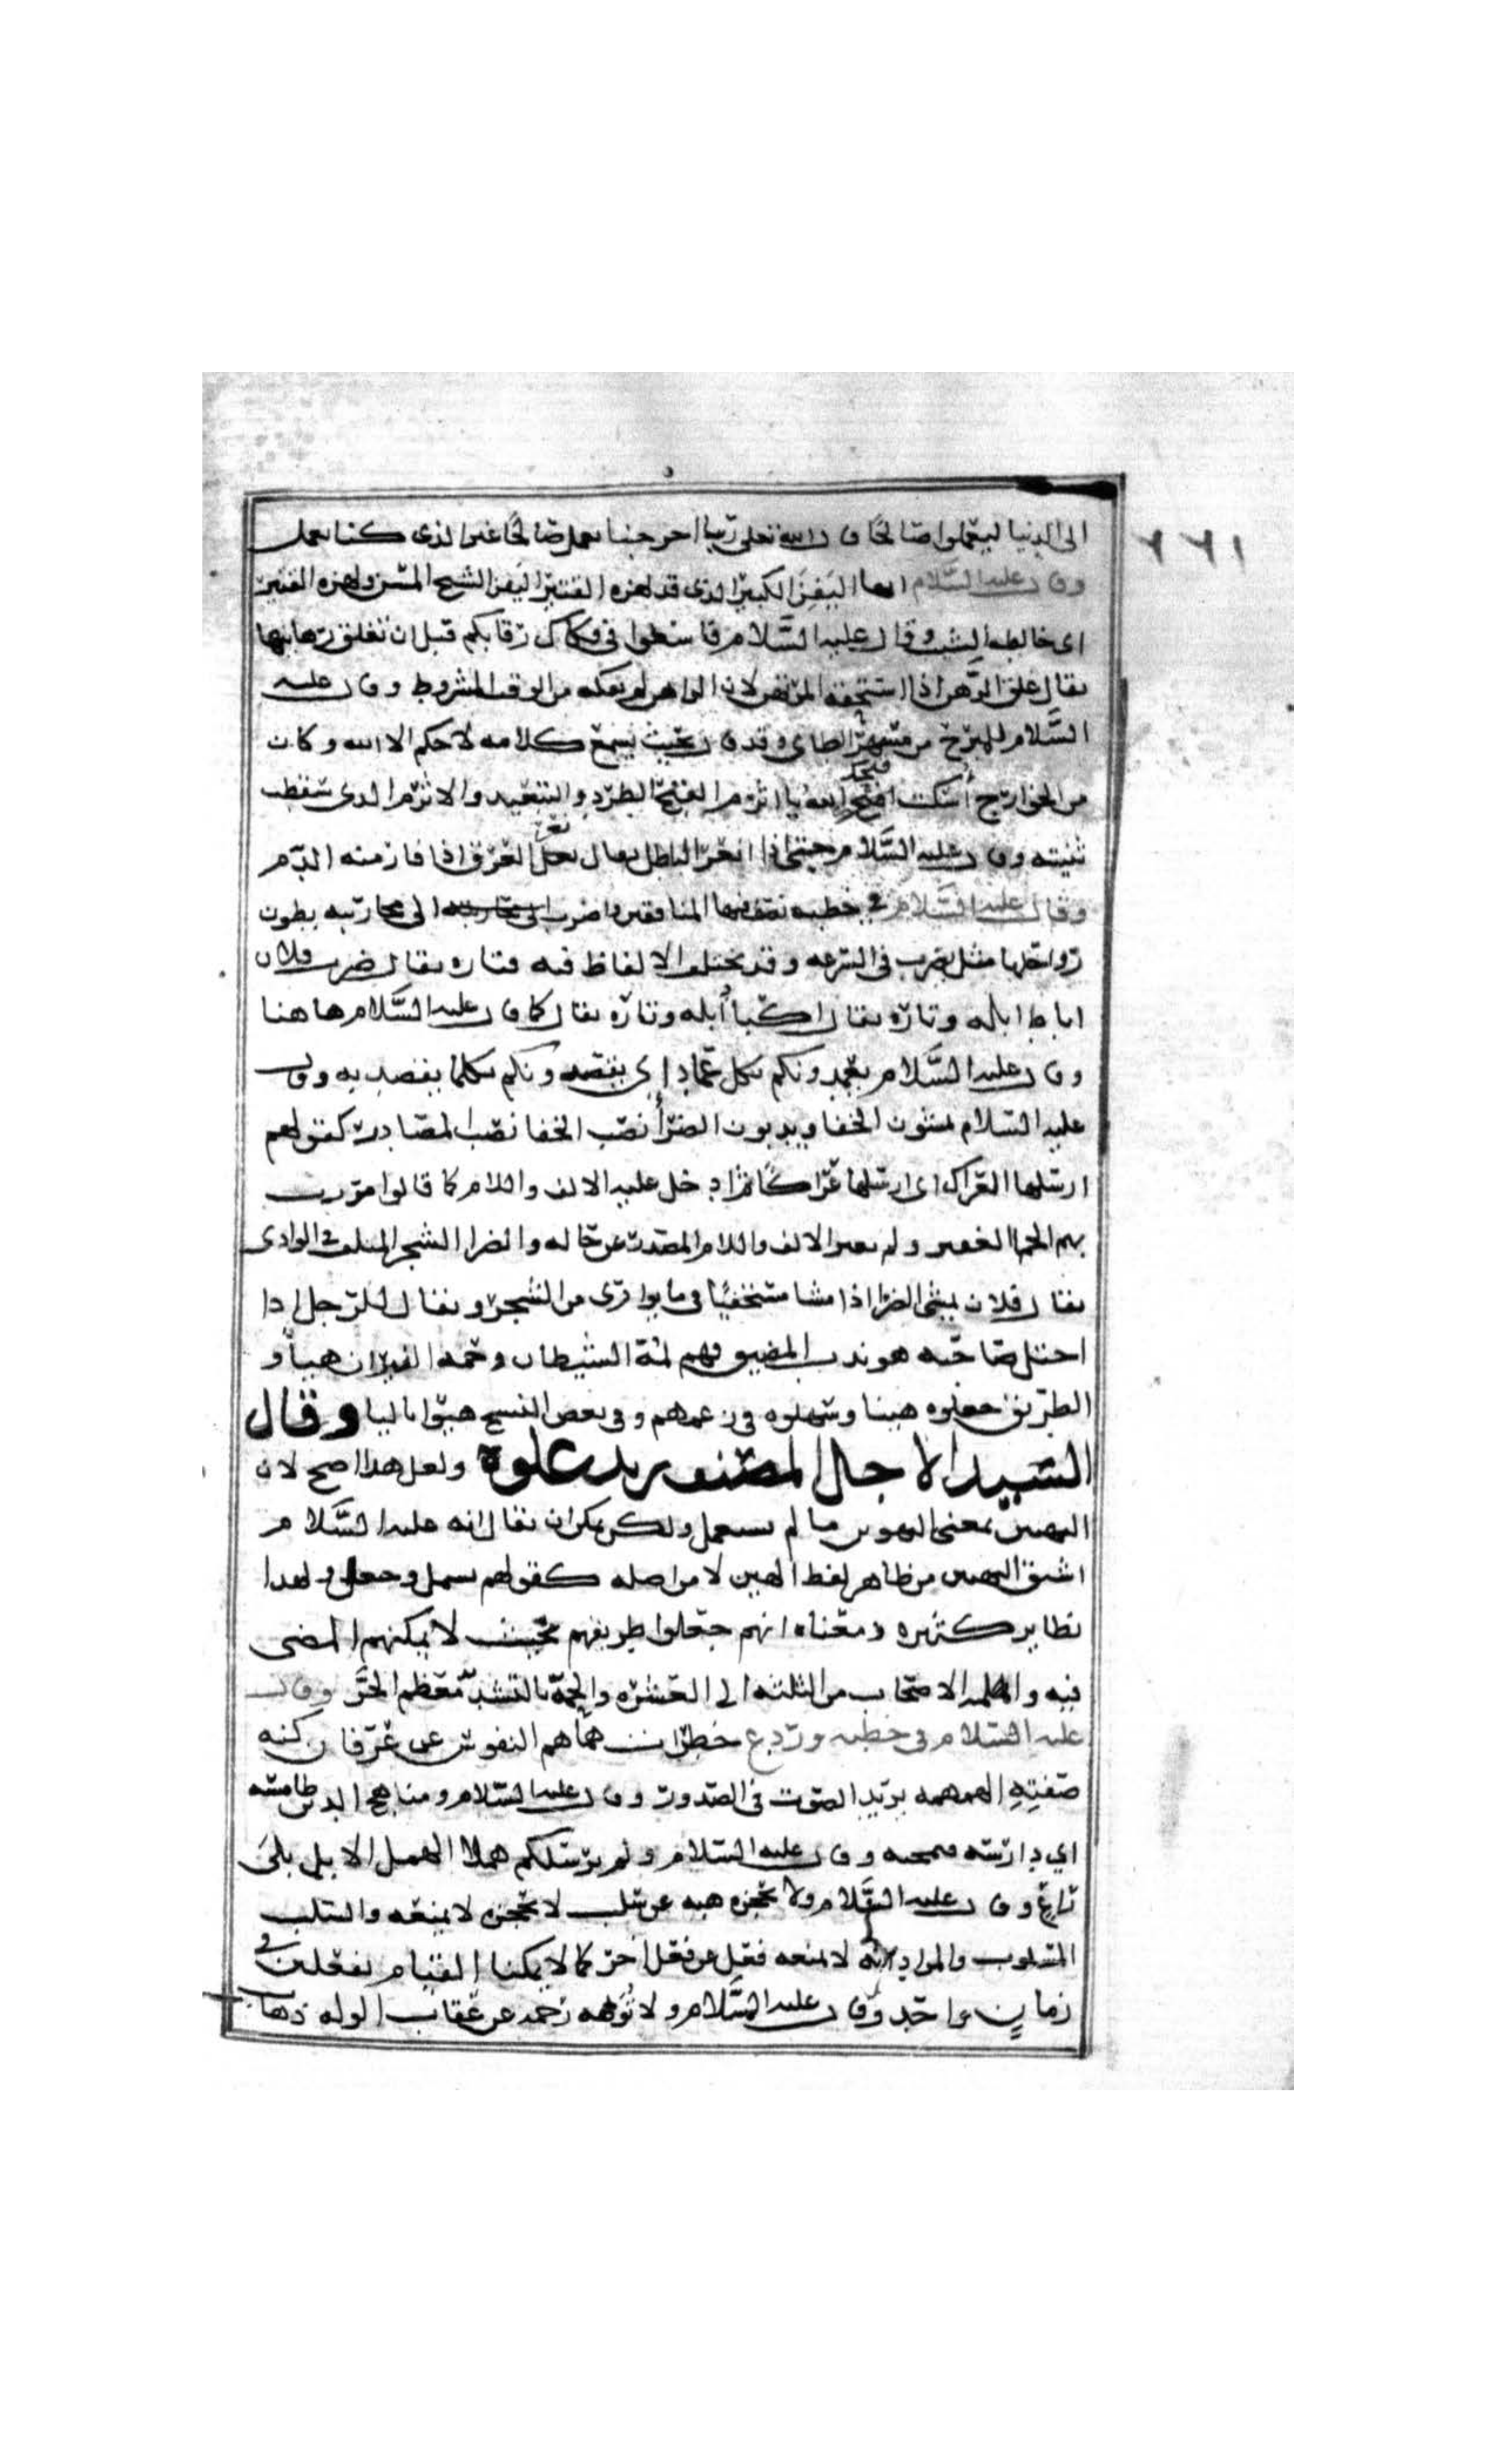 ١٢٢
الى الدنيا ليعملوا صالحًا قال الله تعلى ربنا اخرجنا نعمل صالحًا غير الذى كنا نعمل
وقال عليه السَّلام ايها اليَفِنَ الكبير الذى قد لهزه القتير اليفن الشيخ المسن ولهزه القتير
اى خالطه الشيب وقال عليه السَّلام فاسعوا فى فكاك رقابكم قبل ان تغلق رهاينها
يقال غلق الرَّهن اذا استحقه المرتهن لان الراهن لم يفكه من الوقت المشروط وقال عليه
السَّلام للبرج من مسهر الطاى وقد قال بحيث يسمع كلامه لا حكم الا الله وكان
من الخوارج أسكت قبحك الله يا اثرم القبح الطرد والتبعيد والاثرم الذى سقطت
ثنيته وقال عليه السَّلام حتى اذا نعر الباطل يقال نعر العرق اذا فار منه الدم
وقال عليه السَّلام فى خطبه يصف فيها المنافقين واضرب الى محاربته بطون
رواحلها مثل يضرب فى السرعه وقد يختلف الالفاظ فيه فتاره يقال ضرب فلان
اباط ابله وتاره يقال اكبا أبله وتاره يقال كما قال عليه السَّلام هاهنا
وقال عليه السَّلام يعمدونكم بكل عماد اى يقصدونكم بكلما يقصد به وقال
عليه السَّلام يمشون الخفا ويدبون الضرأ نصب الخفا نصب المصادر كقولهم
ارسلها العراك اى ارسلها عراكًا ثم ادخل عليه الالف واللام كما قالوا مررت
بهم الجما الغفير ولم يغير الالف واللام المصدر عن حاله والضرا الشجر الملتف فى الوادى
يقال فلان يمشى الضرا اذا مشا مستخفيًا فى ما يوارى من الشجر ويقال للرجل اذا
اختل صاحبه هو يدب المضيق فهم لمة الشيطان وحمه النيران هيبأ و
الطريق جعلوه هينا وسهلوه فى زعمهم وفى بعض النسخ هيوا باليا وقال
السيد الاجل المصنف علوة ولعل هذا اصح لان
التهيين بمعنى التهوين مما لم يستعمل ولكن يمكن ان يقال انه عليه السَّلام
اشتق التهيين من ظاهر لفظ الهين لا من اصله كقولهم ولهذا
نظاير كثيره ومعناه انهم جعلوا طريقهم بحيث لا يمكنهم المضى
فيه واللمه الاصحاب من الثلثه الى العشره والحمة بالتشديد معظم الحرَّ وقال
عليه السَّلام فى خطبه وردع خطرات هماهم النفوس عن عرفان كنه
صفتِهِ الهمهمه يريد الصوت فى الصدور وقال عليه السَّلام ومناهج الدين طامسه
اي دارسه منمحيه وقال عليه السَّلام ولم يرسلكم هملا الهمل الابل بلى
رَاعٍ وقال عليه السَّلام ولا تحجزه هبه عن سلب لا تحجزه لا يمنعه والسلب
المسلوب والمراد انه لا يمنعه فعل عن فعل اخر كما لا يمكنا القيام بفعلين فى
زمانٍ واحدٍ وقال عليه السَّلام ولا تُوَلهه رحمه عن عقاب الوله ذهاب